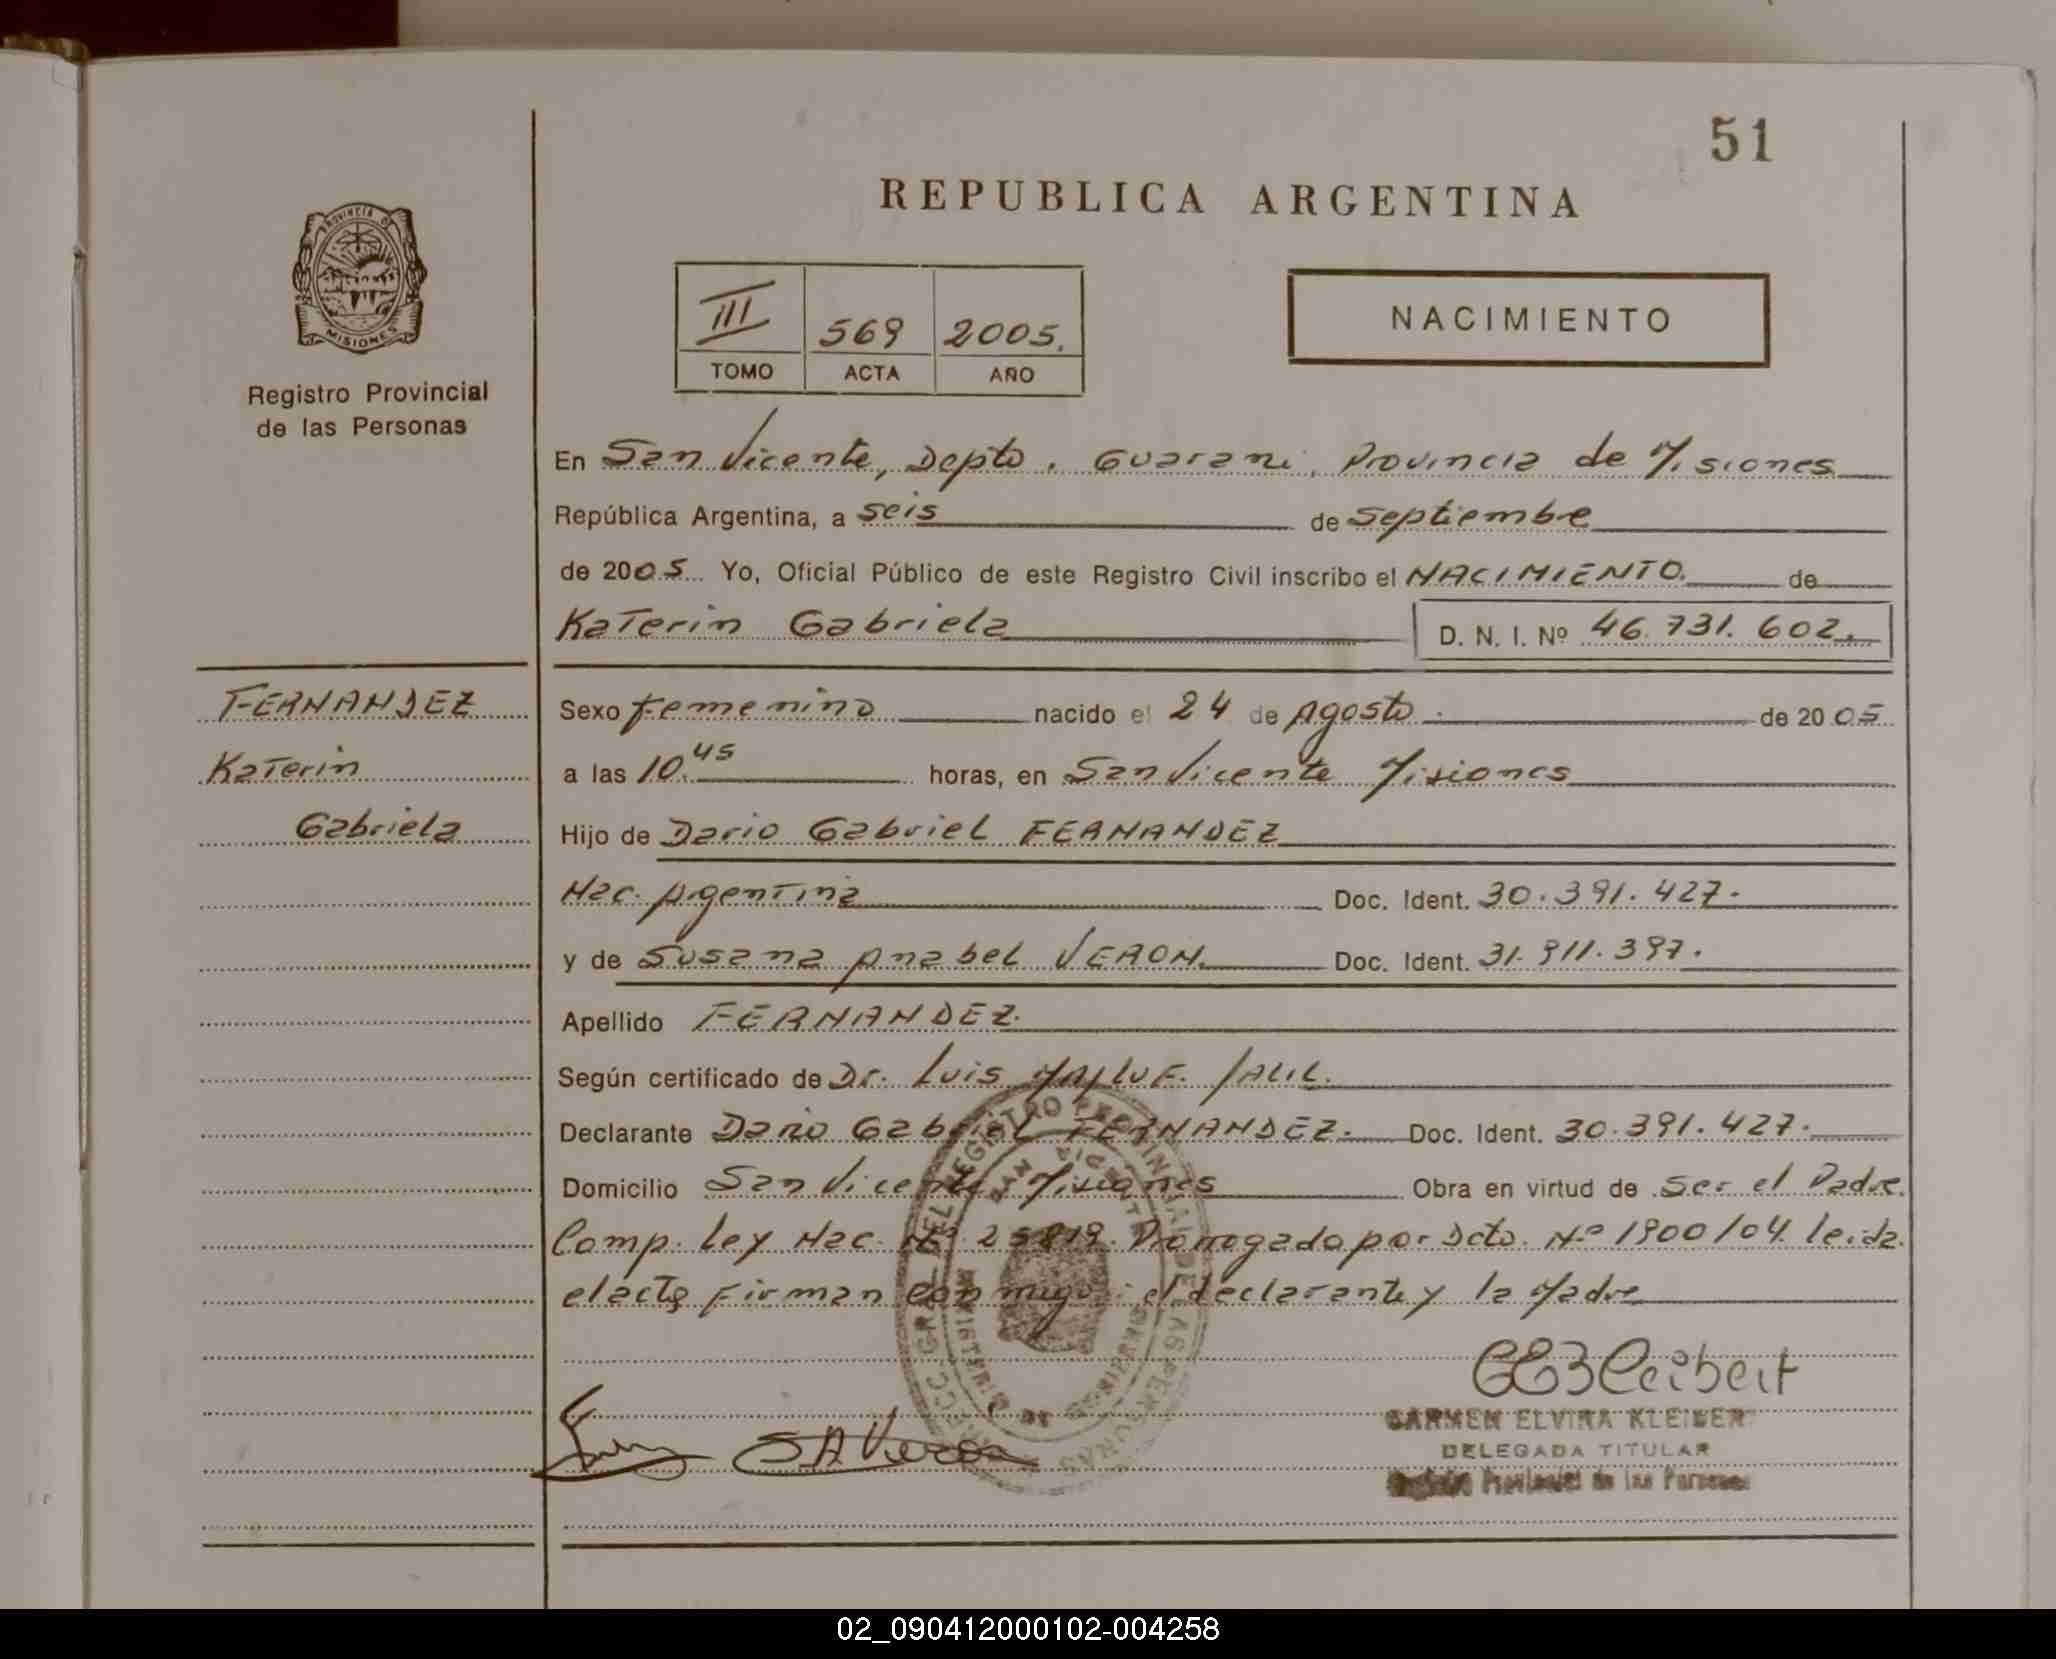 51
REPUBLICA ARGENTINA
PROVINCIA DE
MISIONES
Registro Provincial
de las Personas
III 569 2005.
TOMO ACTA AÑO
NACIMIENTO
En San Vicente, Depto. Guarani, Provincia de Misiones
República Argentina, a seis de Septiembre
de 2005 Yo, Oficial Público de este Registro Civil inscribo el NACIMIENTO. de
Katerin Gabriela D. N. I. Nº 46.731.602.
FERNANDEZ
Katerin
Gabriela
Sexo femenino nacido el 24 de Agosto. de 2005
a las 10.45 horas, en San Vicente Misiones
Hijo de Dario Gabriel FERNANDEZ
Nac. Argentina Doc. Ident. 30.391.427.
y de Susana Anabel VERON. Doc. Ident. 31.911.397.
Apellido FERNANDEZ.
Según certificado de Dr. Luis MALUF. JALIL.
Declarante Dario Gabriel FERNANDEZ. Doc. Ident. 30.391.427.
Domicilio San Vicente Misiones Obra en virtud de Ser el Padre.
Comp. Ley Nac. Nº 25819. Prorrogado por Dcto. Nº 1900/04. leida
el acta firman conmigo: el declarante y la Madre
S A Veron
CARMEN ELVIRA KLEIBER
DELEGADA TITULAR
Registro Provincial de las Personas
02_090412000102-004258